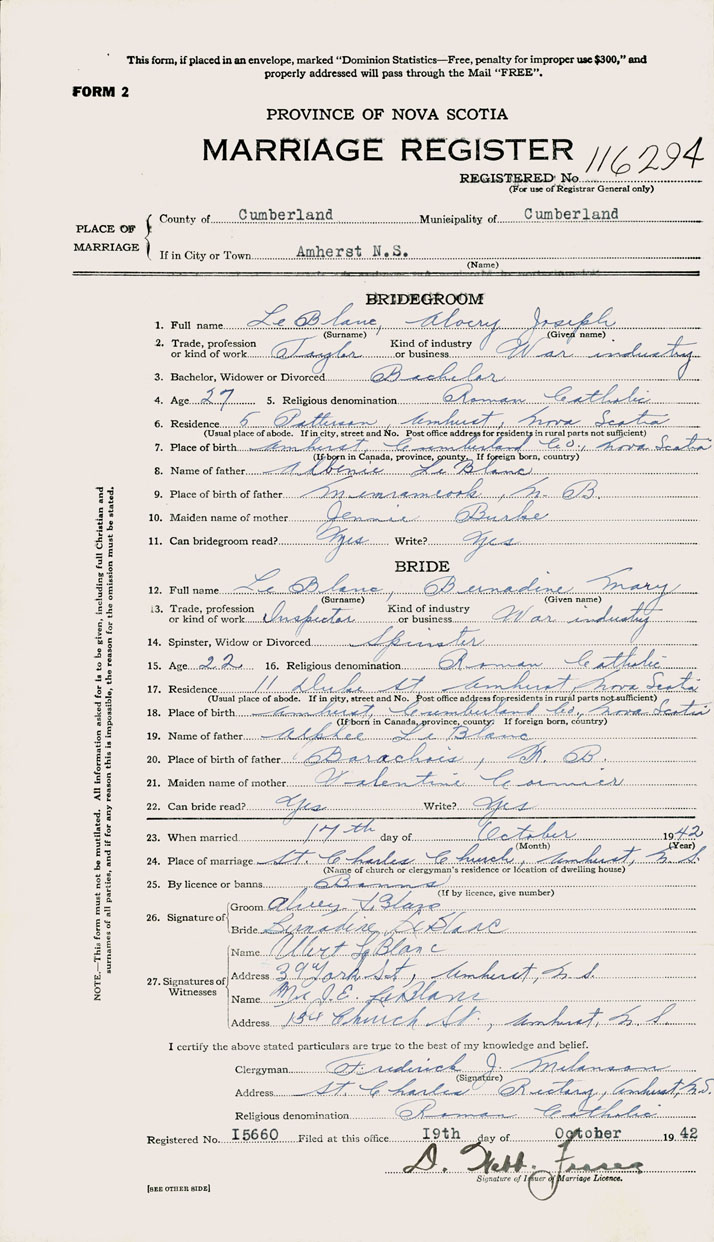 This form, if placed in an envelope, marked "Dominion Statistics—Free, penalty for improper use $300," and
properly addressed will pass through the Mail "FREE".
FORM 2
PROVINCE OF NOVA SCOTIA
MARRIAGE REGISTER
116294
REGISTERED No
(For use of Registrar General only)
PLACE OF MARRIAGE
County of Cumberland Municipality of Cumberland
If in City or Town Amherst N.S.
(Name)
BRIDEGROOM
1. Full name Le Blanc, Alvery Joseph
(Surname) (Given name)
2. Trade, profession or kind of work Taylor Kind of industry or business War industry
3. Bachelor, Widower or Divorced Bachelor
4. Age 27 5. Religious denomination Roman Catholic
6. Residence 5 Patterson, Amherst, Nova Scotia
(Usual place of abode. If in city, street and No. Post office address for residents in rural parts not sufficient)
7. Place of birth Amherst, Cumberland Co., Nova Scotia
(If born in Canada, province, county. If foreign born, country)
8. Name of father Le Blanc
9. Place of birth of father Memramcook, N. B.
10. Maiden name of mother Jennie Burke
11. Can bridegroom read? Yes Write? Yes
BRIDE
12. Full name Le Blanc, Bernadine Mary
(Surname) (Given name)
13. Trade, profession or kind of work Inspector Kind of industry or business War industry
14. Spinster, Widow or Divorced Spinster
15. Age 22 16. Religious denomination Roman Catholic
17. Residence 11 St Amherst, Nova Scotia
(Usual place of abode. If in city, street and No. Post office address for residents in rural parts not sufficient)
18. Place of birth Amherst, Cumberland Co., Nova Scotia
(If born in Canada, province, county. If foreign born, country)
19. Name of father Alphee Le Blanc
20. Place of birth of father Barachois, N. B.
21. Maiden name of mother Valentine Cormier
22. Can bride read? Yes Write? Yes
23. When married 17th day of October 1942
(Month) (Year)
24. Place of marriage St. Charles Church, Amherst, N.S.
(Name of church or clergyman's residence or location of dwelling house)
25. By licence or banns Banns
(If by licence, give number)
26. Signature of
Groom Alvery LeBlanc
Bride Bernadine LeBlanc
27. Signatures of Witnesses
Name LeBlanc
Address 39 York St, Amherst, N.S.
Name J.E. LeBlanc
Address 154 Church St., Amherst, N.S.
I certify the above stated particulars are true to the best of my knowledge and belief.
Clergyman Frederick J. Melanson
(Signature)
Address St. Charles Rectory, Amherst, N.S.
Religious denomination Roman Catholic
Registered No. I5660 Filed at this office I9th day of October 1942
D. Webb.
Signature of Issuer of Marriage Licence.
[SEE OTHER SIDE]
NOTE.—This form must not be mutilated. All information asked for is to be given, including full Christian and
surnames of all parties, and if for any reason this is impossible, the reason for the omission must be stated.